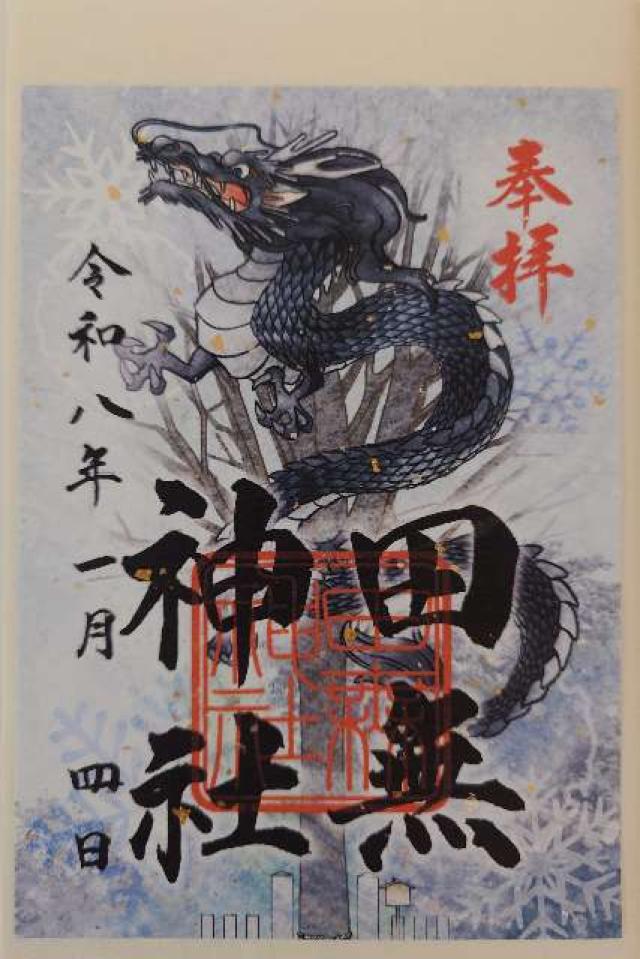 奉拝
田無
神社
令和八年一月四日